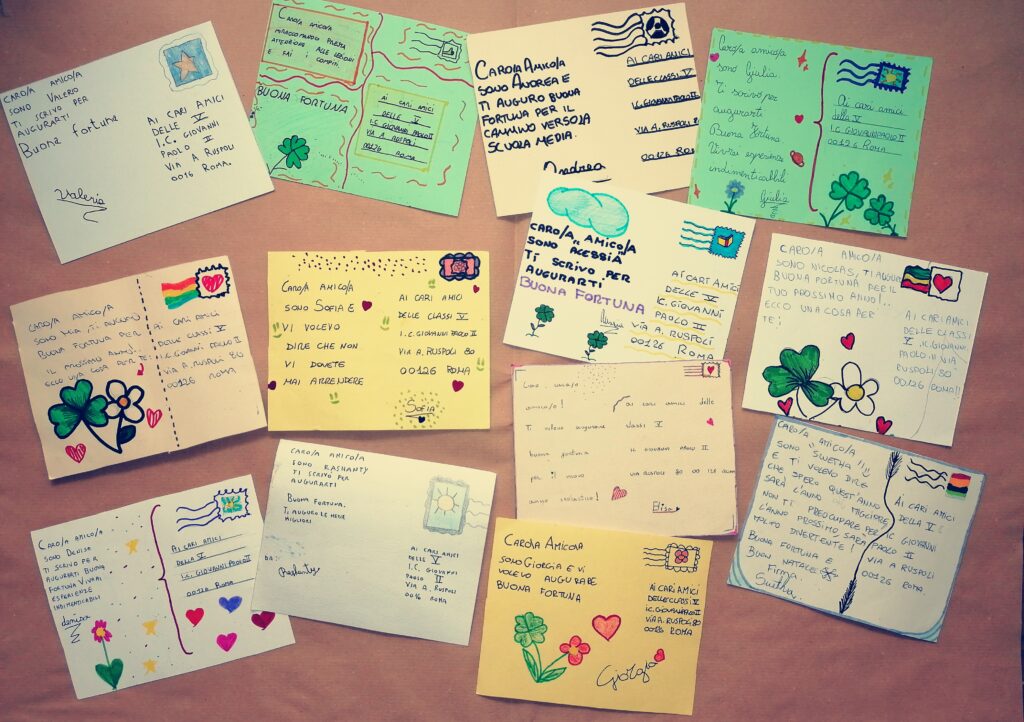 CARO/A AMICO/A
SONO VALERIO
TI SCRIVO PER
AUGURARTI
Buona fortuna
Valerio
AI CARI AMICI
DELLE V
I.C. GIOVANNI
PAOLO II
VIA A RUSPOLI
0016 ROMA.
CARO/A AMICO/A
MI RACCOMANDO PRESTA
ATTENZIONE ALLE LEZIONI
E FAI I COMPITI.
BUONA FORTUNA
AI CARI AMICI
DELLE V
I.C. GIOVANNI PAOLO II
VIA A RUSPOLI
00126 ROMA
CARO/A AMICO/A
SONO ANDREA E
TI AUGURO BUONA
FORTUNA PER IL
CAMMINO VERSO LA
SCUOLA MEDIA.
Andrea
AI CARI AMICI
DELLE CLASSI V
I.C. GIOVANNI PAOLO II
VIA A. RUSPOLI 80
00126 ROMA
Caro/a amico/a
sono Giulia.
Ti scrivo per
augurarti
Buona fortuna
Vivrai esperienze
indimenticabili
Giulia
Ai cari amici
della V
I.C GIOVANNI PAOLO II
VIA A. RUSPOLI
00126 ROMA
CARO/A AMICO/A
SONO MIA, TI AUGURO
BUONA FORTUNA PER
IL PROSSIMO ANNO!
ECCO UNA COSA PER TE!
AI CARI AMICI
DELLE CLASSI V
I.C. GIOVANNI PAOLO II
VIA A. RUSPOLI 80
00126 ROMA
CARO/A AMICO/A
SONO SOFIA E
VI VOLEVO
DIRE CHE NON
VI DOVETE
MAI ARRENDERE
AI CARI AMICI
DELLE CLASSI V
I.C. GIOVANNI PAOLO II
VIA A. RUSPOLI 80
00126 ROMA
SOFIA
CARO/A AMICO/A
SONO ALESSIA
TI SCRIVO PER
AUGURARTI
BUONA FORTUNA
AI CARI AMICI
DELLE V
I.C. GIOVANNI
PAOLO II
VIA A. RUSPOLI
00126 ROMA
CARO/A AMICO/A
SONO NICOLAS, TI AUGURO
BUONA FORTUNA PER IL
TUO PROSSIMO ANNO!..
ECCO UNA COSA PER
TE!
AI CARI AMICI
DELLE CLASSI
V IL GIOVANNI
PAOLO II VIA
RUSPOLI 80
00126 ROMA!!
amico/a!
Ti volevo augurare
buona fortuna
per il nuovo
anno scolastico!
ai cari amici delle
classi V
IC GIOVANNI PAOLO II
VIA RUSPOLI 80 00 126
Elisa
CARO/A AMICO/A
SONO "SWETHA"!!
E TI VOLEVO DIRE
CHE SPERO QUEST'ANNO
SARÀ L'ANNO MIGLIORE
NON TI PREOCCUPARE PER IL
L'ANNO PROSSIMO SARÀ
MOLTO DIVERTENTE!
BUONA FORTUNA E
BUON NATALE
FIRMA
Swetha
AI CARI AMICI
DELLA V
I.C GIOVANNI
PAOLO II
VIA A RUSPOLI
00126 ROMA
CARO/A AMICO/A
SONO DENISA
TI SCRIVO PER
AUGURATI BUONA
FORTUNA VIVRAI
ESPERIENZE
INDIMENTICABILI
denisa
AI CARI AMICI
DELLA V
I.C. GIOVANNI PAOLO II
VIA A. RUSPOLI
00126 Roma
CARO/A AMICO/A
SONO RASHANTY
TI SCRIVO PER
AUGURARTI
BUONA FORTUNA.
TI AUGURO LE MEGIE
MIGLIORI
DA:
Rashanty
AI CARI AMICI
DELLE V
I.C. GIOVANNI
PAOLO II
VIA A. RUSPOLI
0016 ROMA
CARO/A AMICO/A
SONO GIORGIA E VI
VOLEVO AUGURARE
BUONA FORTUNA
AI CARI AMICI
DELLE CLASSI V
I.C. GIOVANNI PAOLO II
VIA A. RUSPOLI 80
00126 ROMA
Giorgia